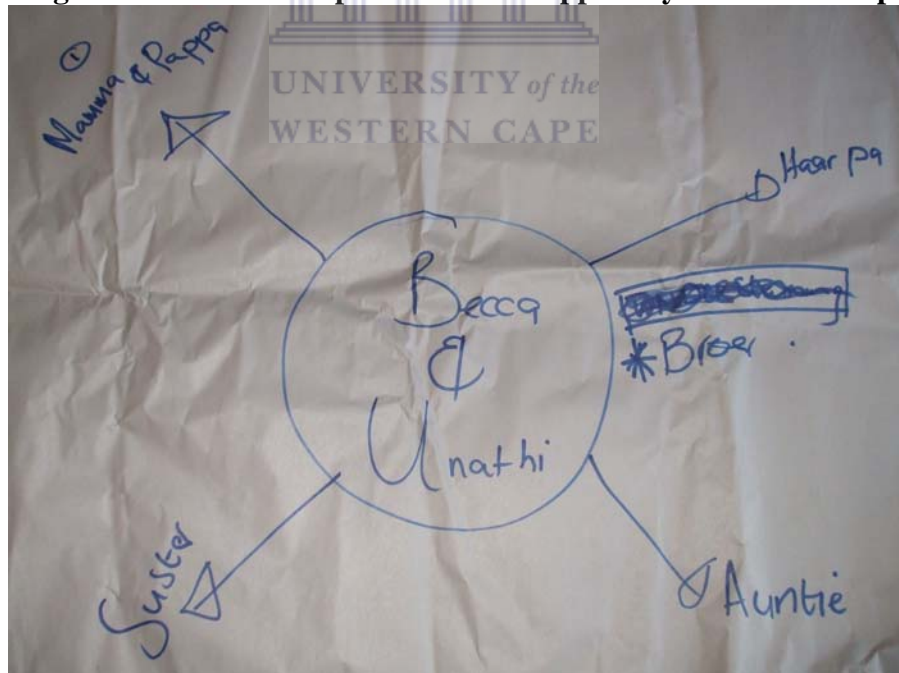 UNIVERSITY of the
WESTERN CAPE
①
Mamma & Pappa
Haar pa
Becca
&
Unathi
* Broer .
Suster
Auntie